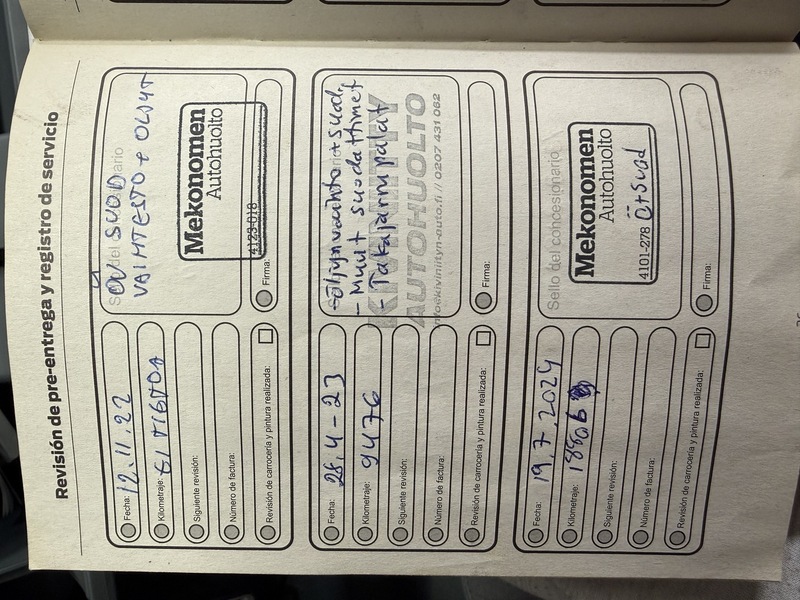 Revisión de pre-entrega y registro de servicio
Fecha: 12.11.22
Kilometraje: EI TIETOA
Siguiente revisión:
Número de factura:
Revisión de carrocería y pintura realizada:
VAIHTESTO + ÖLJYT
Mekonomen
Autohuolto
4123-018
Firma:
Fecha: 28.4-23
Kilometraje: 9476
Siguiente revisión:
Número de factura:
Revisión de carrocería y pintura realizada:
- öljynvaihto + suod.
- Muut suodattimet
- Takajarrupalat
KIVINIITYN
AUTOHUOLTO
info@kiviniityn-auto.fi // 0207 431 062
Firma:
Fecha: 19.7.2024
Kilometraje: 18806
Siguiente revisión:
Número de factura:
Revisión de carrocería y pintura realizada:
Sello del concesionario
Mekonomen
Autohuolto
4101-278 Ö+Suod
Firma: